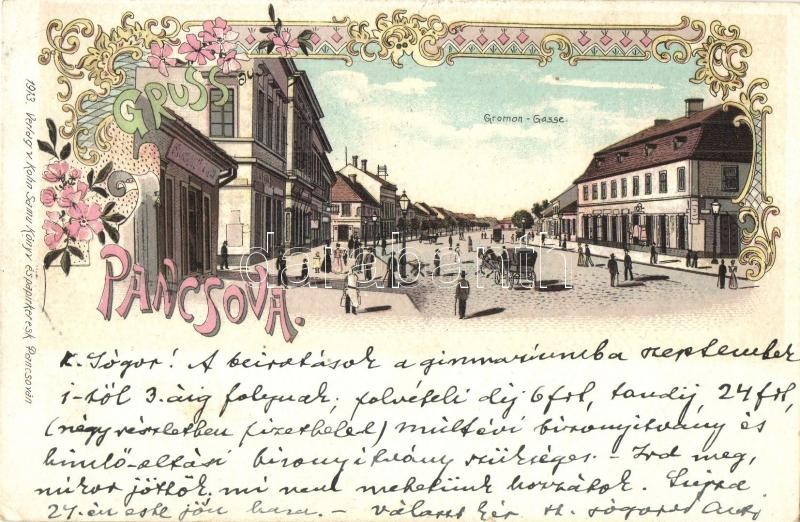 GRUSS aus
PANCSOVA.
Gromon - Gasse.
1913. Verlag v. Kohn Samu Könyv és papirkeresk. Pancsován
darabanth
K. Sógor! A beiratások a gimnáziumba szeptember
1-től 3.áig folynak, felvételi díj 6 frt, tandíj 24 frt,
(négy részletben fizetheted) múltévi bizonyítvány és
himlő-oltási bizonyítvány szükséges. - Írd meg,
mikor jöttök, mi nem mehetünk hozzátok.
27.én este jön haza. - választ kér sógorod